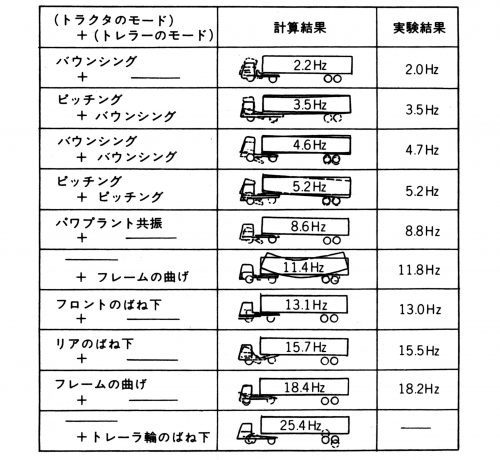 (トラクタのモード)
+(トレラーのモード)
計算結果
実験結果
バウンシング
+ ———
2.2Hz
2.0Hz
ピッチング
+ バウンシング
3.5Hz
3.5Hz
バウンシング
+ バウンシング
4.6Hz
4.7Hz
ピッチング
+ ピッチング
5.2Hz
5.2Hz
パワプラント共振
+ ———
8.6Hz
8.8Hz
———
+ フレームの曲げ
11.4Hz
11.8Hz
フロントのばね下
+ ———
13.1Hz
13.0Hz
リアのばね下
+ ———
15.7Hz
15.5Hz
フレームの曲げ
+ ———
18.4Hz
18.2Hz
———
+トレーラ輪のばね下
25.4Hz
———